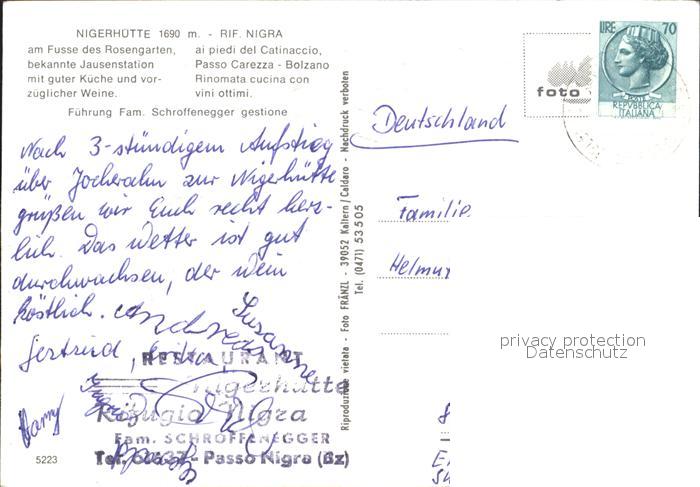 NIGERHÜTTE 1690 m. - RIF. NIGRA
am Fusse des Rosengarten,
bekannte Jausenstation
mit guter Küche und vor-
züglicher Weine.
ai piedi del Catinaccio,
Passo Carezza - Bolzano
Rinomata cucina con
vini ottimi.
Führung Fam. Schroffenegger gestione
Nach 3-stündigem Aufstieg
über Jocheralm zur Nigerhütte
grüßen wir Euch recht herz-
lich. Das Wetter ist gut
durchwachsen, der Wein
köstlich. Andreas
Susanne
Gertrud,
Ingrid
Harry
RESTAURANT
Nigerhütte
Rifugio Nigra
Fam. SCHROFFENEGGER
Tel. - Passo Nigra (Bz)
5223
Riproduzione vietata - Foto FRÄNZL - 39052 Kaltern / Caldaro - Nachdruck verboten
Tel. (0471) 53505
foto
LIRE 70
REPVBBLICA
ITALIANA
Deutschland
Familie
Helmut
privacy protection
Datenschutz